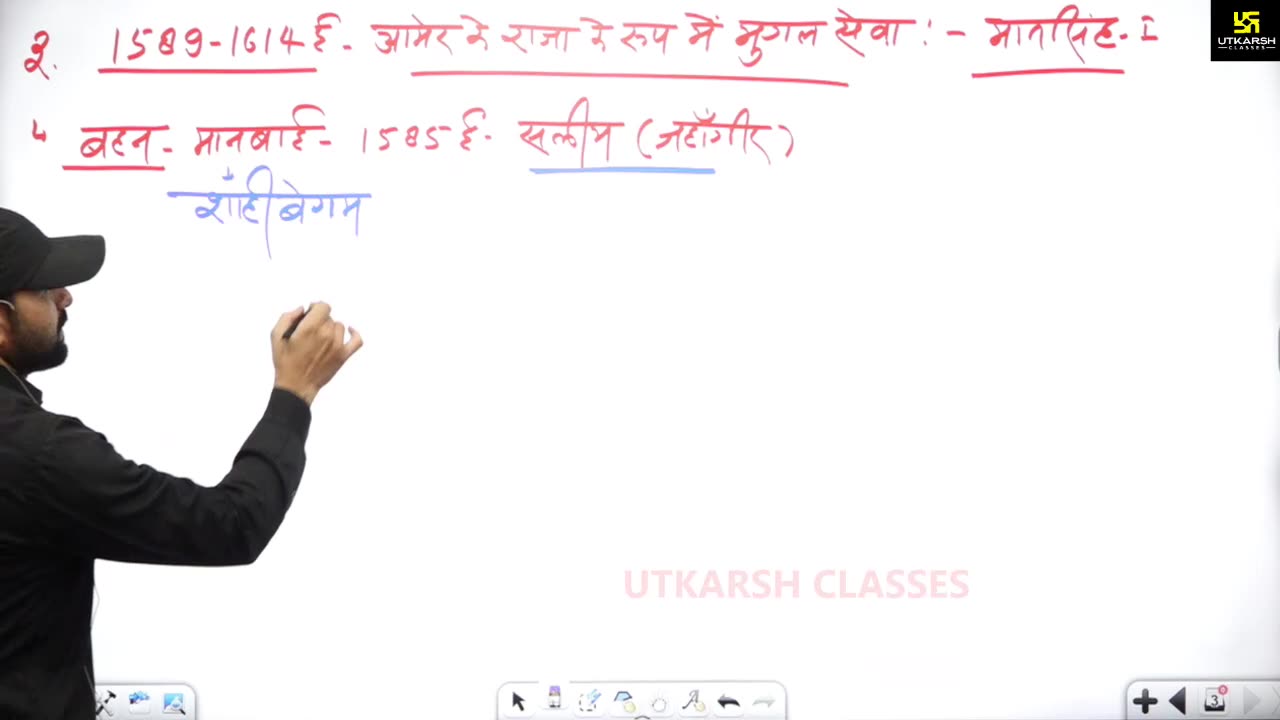 UTKARSH
CLASSES
2. 1589-1614 ई - आमेर के राजा के रूप में मुगल सेवा :- मानसिंह-I
बहन - मानबाई - 1585 ई - सलीम (जहाँगीर)
शाही बेगम
UTKARSH CLASSES
3